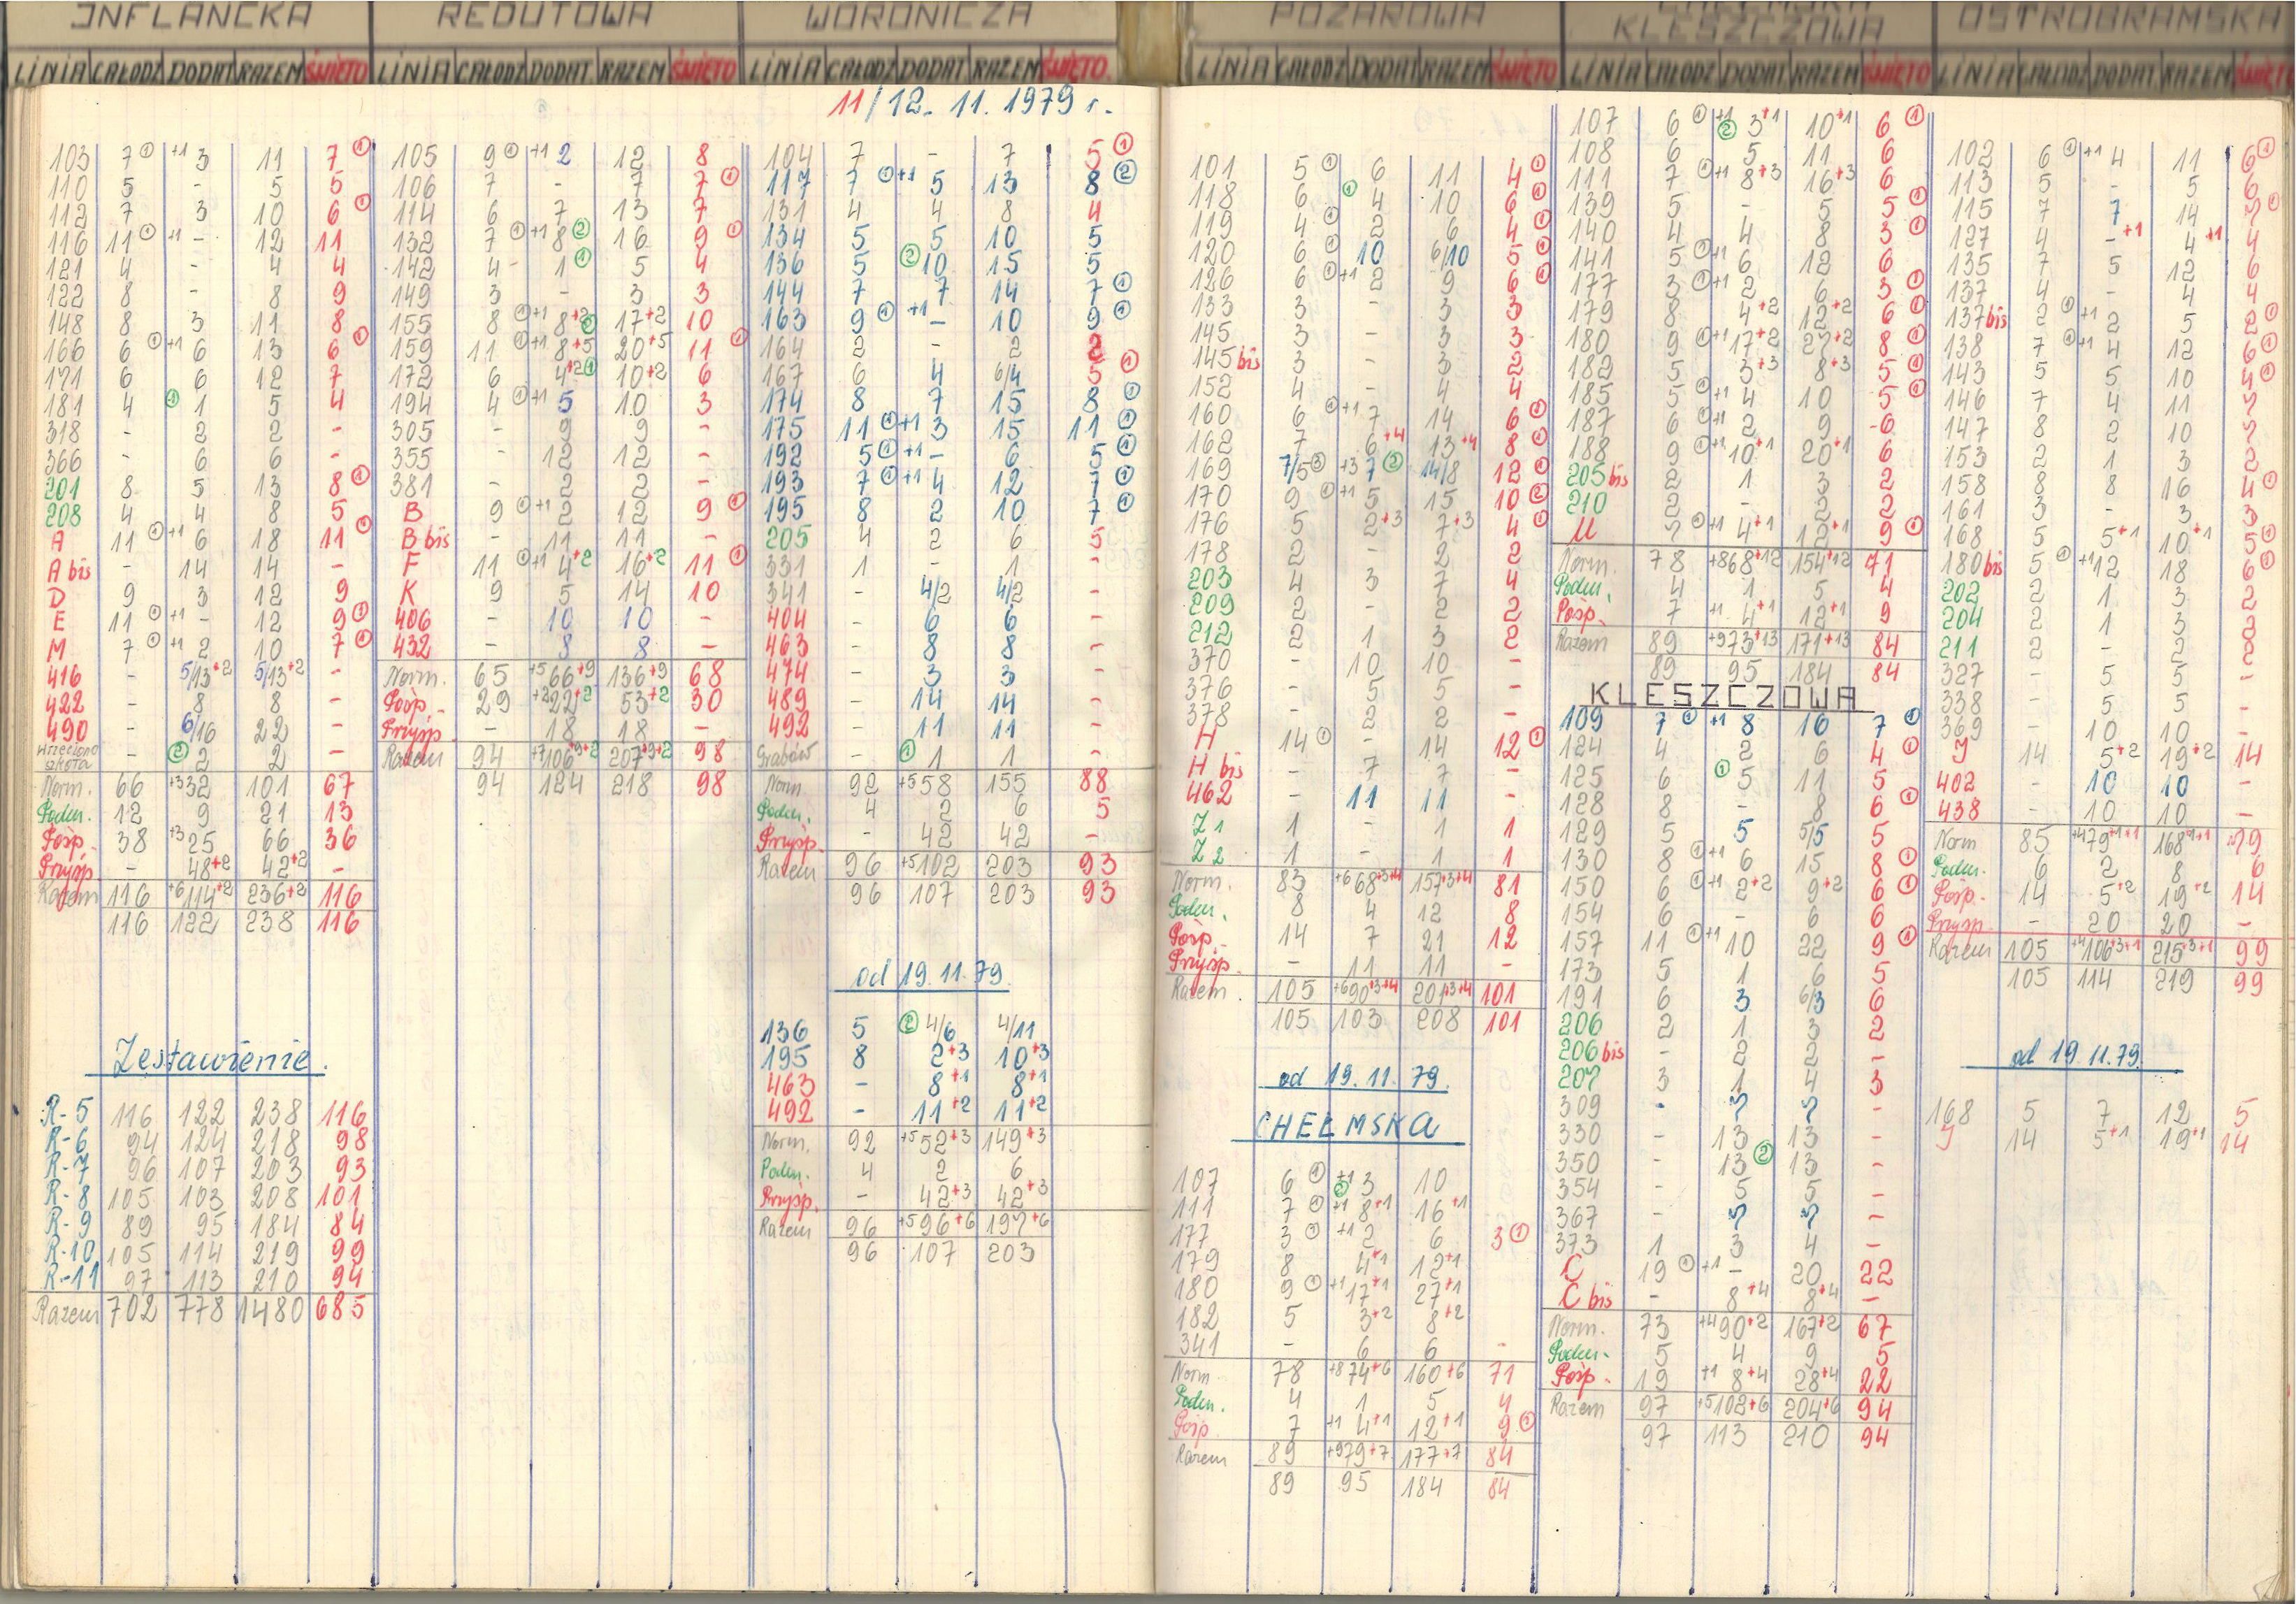 INFLANCKA
LINIA CAŁODZ DODAT RAZEM ŚWIĘTO
103 7① +1 3 11 7①
110 5 - 5 5
112 7 3 10 6①
116 11① +1 - 12 11
121 4 - 4 4
122 8 - 8 9
148 8 3 11 8
166 6① +1 6 13 6①
171 6 6 12 7
181 4 ① 1 5 4
318 - 2 2 -
366 - 6 6 -
201 8 5 13 8①
208 4 4 8 5
A 11① +1 6 18 11①
A bis - 14 14 -
D 9 3 12 9
E 11① +1 - 12 9①
M 7① +1 2 10 7①
416 - 5/13+2 5/13+2 -
422 - 8 8 -
490 - 6/16 22 -
Wrzeciono szkoła - ② 2 2 -
Norm. 66 +3 32 101 67
Podm. 12 9 21 13
Posp. 38 +3 25 66 36
Przysp. - 48+2 42+2 -
Razem 116 +6 114+2 236+2 116
116 122 238 116
Zestawienie.
R-5 116 122 238 116
R-6 94 124 218 98
R-7 96 107 203 93
R-8 105 103 208 101
R-9 89 95 184 84
R-10 105 114 219 99
R-11 97 113 210 94
Razem 702 778 1480 685
REDUTOWA
LINIA CAŁODZ DODAT RAZEM ŚWIĘTO
105 9① +1 2 12 8
106 7 - 7 7①
114 6 7 13 7
132 7① +1 8② 16 9①
142 4 1① 5 4
149 3 - 3 3
155 8① +1 8+2② 17+2 10
159 11① +1 8+5 20+5 11①
172 6 4+2① 10+2 6
194 4① +1 5 10 3
305 - 9 9 -
355 - 12 12 -
381 - 2 2 -
B 9① +1 2 12 9①
B bis - 11 11 -
F 11① +1 4+2 16+2 11①
K 9 5 14 10
406 - 10 10 -
432 - 8 8 -
Norm. 65 +5 66+9 136+9 68
Posp. 29 +2 22+2 53+2 30
Przysp. - 18 18 -
Razem 94 +7 106+9+2 207+9+2 98
94 124 218 98
WORONICZA
LINIA CAŁODZ DODAT RAZEM ŚWIĘTO
11/12. 11. 1979 r.
104 7 - 7 5①
117 7① +1 5 13 8②
131 4 4 8 4
134 5 5 10 5
136 5 ② 10 15 5
144 7 7 14 7①
163 9① +1 - 10 9①
164 2 - 2 2
167 6 4 6/4 5①
174 8 7 15 8①
175 11① +1 3 15 11①
192 5① +1 - 6 5①
193 7① +1 4 12 7①
195 8 2 10 7①
205 4 2 6 5
331 1 - 1 -
341 - 4/2 4/2 -
404 - 6 6 -
463 - 8 8 -
474 - 3 3 -
489 - 14 14 -
492 - 11 11 -
Grabów - ① 1 1 -
Norm 92 +5 58 155 88
Podm. 4 2 6 5
Przysp. - 42 42 -
Razem 96 +5 102 203 93
96 107 203 93
od 19.11.79.
136 5 ② 4/6 4/11
195 8 2+3 10+3
463 - 8+1 8+1
492 - 11+2 11+2
Norm. 92 +5 52+3 149+3
Podm. 4 2 6
Przysp. - 42+3 42+3
Razem 96 +5 96+6 197+6
96 107 203
POŻAROWA
LINIA CAŁODZ DODAT RAZEM ŚWIĘTO
101 5① 6 11 4①
118 6 ① 4 10 6①
119 4① 2 6 4①
120 6① 10 6/10 5①
126 6① +1 2 9 6①
133 3 - 3 3
145 3 - 3 3
145 bis 3 - 3 2
152 4 - 4 4
160 6① +1 7 14 6①
162 7 6+4 13+4 8①
169 7/5③ +3 7② 14/8 12①
170 9① +1 5 15 10②
176 5 2+3 7+3 4①
178 2 - 2 2
203 4 3 7 4
209 2 - 2 2
212 2 1 3 2
370 - 10 10 -
376 - 5 5 -
378 - 2 2 -
H 14① - 14 12①
H bis - 7 7 -
462 - 11 11 -
Z1 1 - 1 1
Z2 1 - 1 1
Norm. 83 +6 68+3+4 157+3+4 81
Podm. 8 4 12 8
Posp. 14 7 21 12
Przysp. - 11 11 -
Razem. 105 +6 90+3+4 201+3+4 101
105 103 208 101
od 19.11.79.
CHEŁMSKA
107 6① +1② 3 10
111 7① +1 8+1 16+1
177 3① +1 2 6 3①
179 8 4+1 12+1
180 9① +1 17+1 27+1
182 5 3+2 8+2
341 - 6 6 -
Norm 78 +8 74+6 160+6 71
Podm. 4 1 5 4
Posp. 7 +1 4+1 12+1 9①
Razem 89 +9 79+7 177+7 84
89 95 184 84
CHEŁMSKA
KLESZCZOWA
LINIA CAŁODZ DODAT RAZEM ŚWIĘTO
107 6① +1② 3+1 10+1 6①
108 6 5 11 6
111 7① +1 8+3 16+3 6
139 5 - 5 5①
140 4 4 8 3①
141 5① +1 6 12 6
177 3① +1 2 6 3①
179 8 4+2 12+2 6①
180 9① +1 17+2 27+2 8①
182 5 3+3 8+3 5①
185 5① +1 4 10 5①
187 6① +1 2 9 6
188 9① +1 10+1 20+1 6
205 bis 2 1 3 2
210 2 - 2 2
U 7① +1 4+1 12+1 9①
Norm. 78 +8 68+12 154+12 71
Podm. 4 1 5 4
Posp. 7 +1 4+1 12+1 9
Razem 89 +9 73+13 171+13 84
89 95 184 84
KLESZCZOWA
109 7① +1 8 16 7①
124 4 2 6 4①
125 6 ① 5 11 5
128 8 - 8 6①
129 5 5 5/5 5
130 8① +1 6 15 8①
150 6① +1 2+2 9+2 6①
154 6 - 6 6
157 11① +1 10 22 9①
173 5 1 6 5
191 6 3 6/3 6
206 2 1 3 2
206 bis - 2 2 -
207 3 1 4 3
309 - 7 7 -
330 - 13 13 -
350 - 13② 13 -
354 - 5 5 -
367 - 7 7 -
373 1 3 4 -
C 19① +1 - 20 22
C bis - 8+4 8+4 -
Norm. 73 +4 90+2 167+2 67
Podm. 5 4 9 5
Posp. 19 +1 8+4 28+4 22
Razem 97 +5 102+6 204+6 94
97 113 210 94
OSTROBRAMSKA
LINIA CAŁODZ DODAT RAZEM ŚWIĘT
102 6① +1 4 11 6①
113 5 - 5 6
115 7 7 14 7①
127 4 -+1 4+1 4
135 7 5 12 6
137 4 - 4 4
137 bis 2① +1 2 5 2①
138 7① +1 4 12 6①
143 5 5 10 4①
146 7 4 11 7
147 8 2 10 7
153 2 1 3 2
158 8 8 16 4①
161 3 - 3 3
168 5 5+1 10+1 5①
180 bis 5① +1 12 18 6①
202 2 1 3 2
204 2 1 3 2
211 2 - 2 2
327 - 5 5 -
338 - 5 5 -
369 - 10 10 -
J 14 5+2 19+2 14
402 - 10 10 -
438 - 10 10 -
Norm 85 +4 79+1+1 168+1+1 79
Podm. 6 2 8 6
Posp. 14 5+2 19+2 14
Przysp. - 20 20 -
Razem 105 +4 106+3+1 215+3+1 99
105 114 219 99
od 19.11.79.
168 5 7 12 5
J 14 5+1 19+1 14